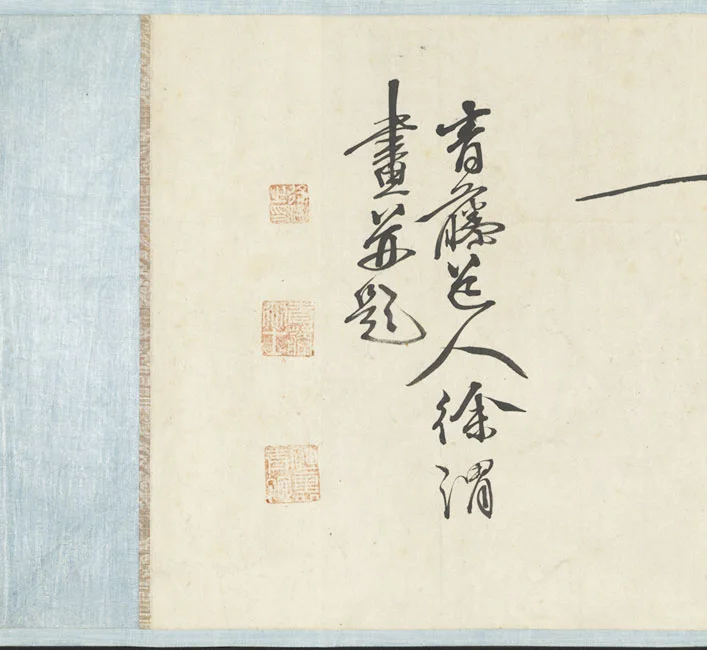 青藤道人徐渭
畫并題